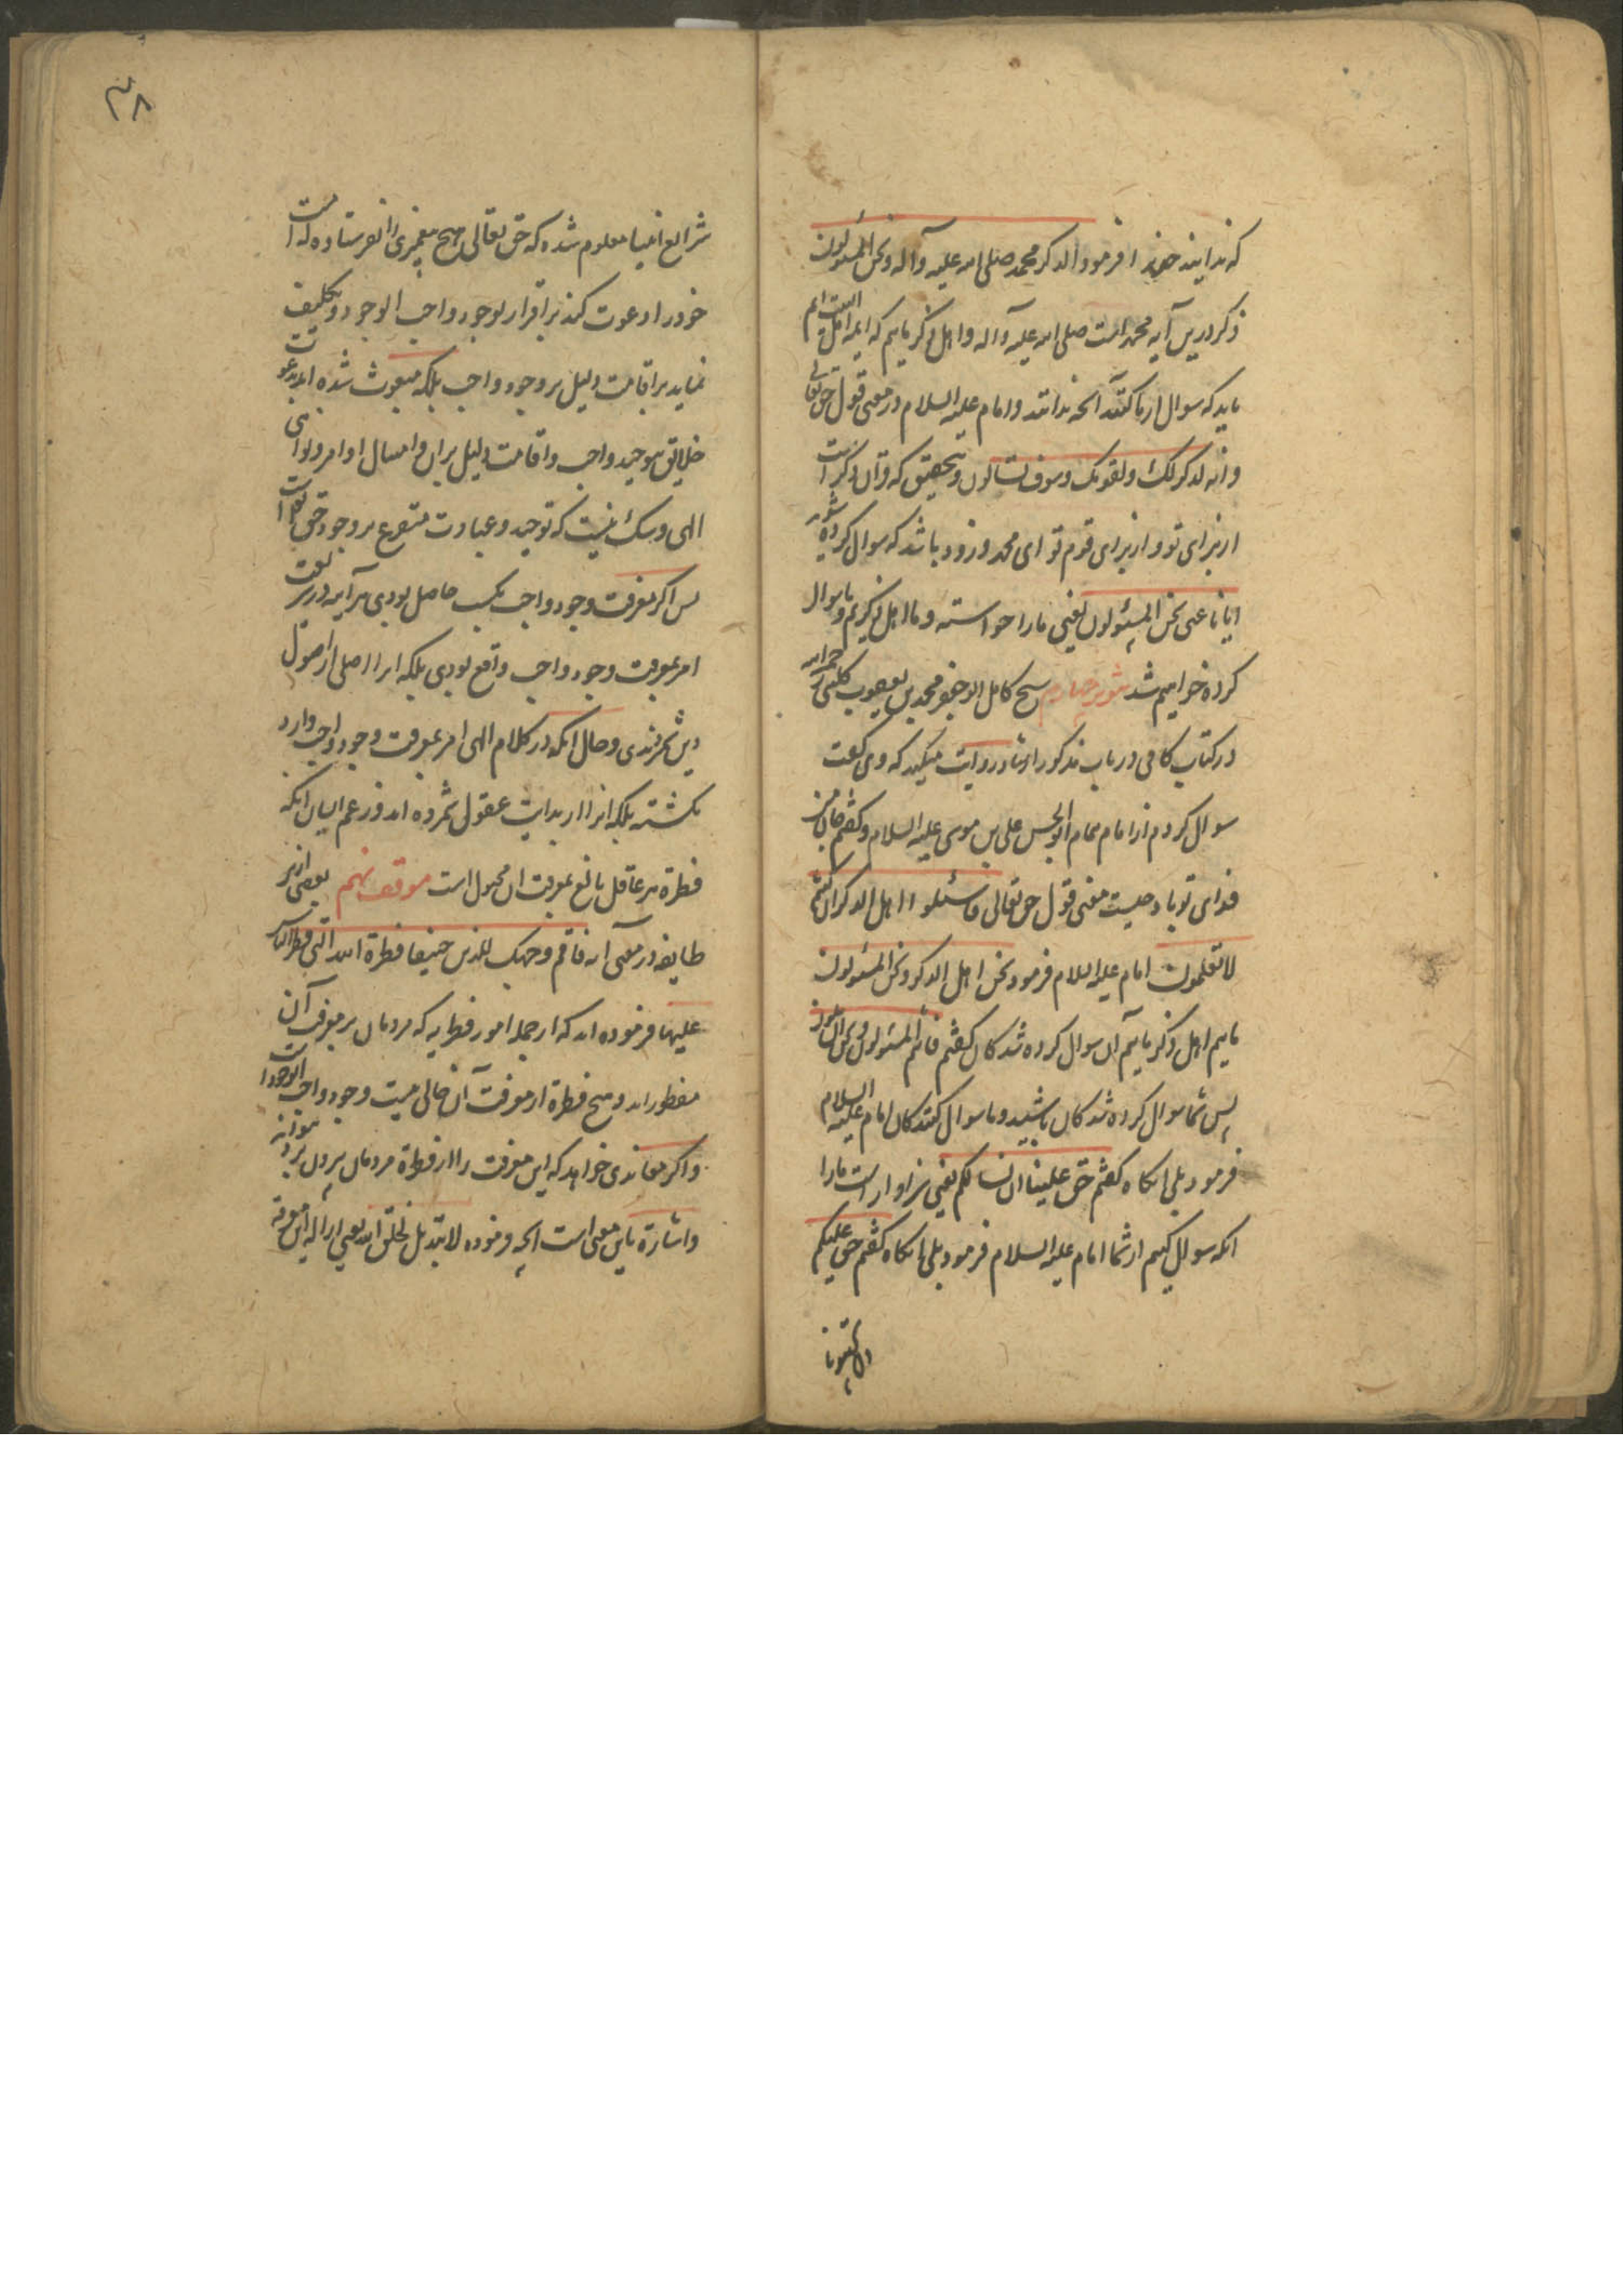 که ندانید چیزیرا فرمود الذکر محمد صلی الله علیه وآله ونحن المسئولون
ذکر درین آیه محمد است صلی الله علیه وآله واهل ذکر ماییم که ایمه اهل البیت ایم
باید که سوال از ما کنند آنچه ندانند وامام علیه السلام در معنی قول حق تعالی
وانه لذکر لک ولقومک وسوف تسالون وبتحقیق که قرآن ذکر است
از برای تو واز برای قوم تو ای محمد وزود باشد که سوال کرده شوید
ایانا عنی نحن المسئولون یعنی ما را خواسته وما اهل ذکریم وما سوال
کرده خواهیم شد تنویر چهارم شیخ کامل ابو جعفر محمد بن یعقوب کلینی رحمه الله
در کتاب کافی در باب مذکور از وشا روایت میکند که وی گفت
سوال کردم از امام همام ابو الحسن علی بن موسی علیه السلام وگفتم جان من
فدای تو باد چیست معنی قول حق تعالی فاسئلوا اهل الذکر ان کنتم
لا تعلمون امام علیه السلام فرمود نحن اهل الذکر ونحن المسئولون
ماییم اهل ذکر ماییم آن سوال کرده شدکان گفتم فانتم المسئولون ونحن السائلون
پس شما سوال کرده شدکان باشید وما سوال کنندکان امام علیه السلام
فرمود بلی انکاه گفتم حق علینا ان نسالکم یعنی سزاوار است ما را
انکه سوال کنیم از شما امام علیه السلام فرمود بلی انکاه گفتم حق علیکم
ان تجیبونا
۴۸
شرایع انبیا معلوم شده که حق تعالی هیچ پیغمبری را نفرستاده که امت
خود را دعوت کند بر اقرار بوجود واجب الوجود وتکلیف
نماید بر اقامت دلیل بر وجود واجب بلکه مبعوث شده اند بدعوت
خلایق بتوحید واجب واقامت دلیل بران وامتثال اوامر ونواهی
الهی وشک نیست که توحید وعبادت متفرع بر وجود حق تعالی است
پس اکر معرفت وجود واجب بکسب حاصل بودی هر آینه در شریعت
امر بمعرفت وجود واجب واقع بودی بلکه انرا اصلی از اصول
دین شمردندی وحال انکه در کلام الهی امر بمعرفت وجود واجب وارد
نکشته بلکه انرا از بدایت عقول شمرده اند وزعم ایشان انکه
فطرة هر عاقل بالغ بمعرفت ان مجبول است موقف نهم بعضی از این
طایفه در معنی آیه فاقم وجهک للدین حنیفا فطرة الله التی فطر الناس
علیها فرموده اند که از جمله امور فطریه که مردمان بر معرفت آن
مفطورند وهیچ فطرة از معرفت آن خالی نیست وجود واجب الوجود است
واکر معاندی خواهد که این معرفت را از فطرة مردمان بیرون برد نتواند
واشارة باین معنی است انچه فرموده لا تبدیل لخلق الله یعنی ازاله این معرفة